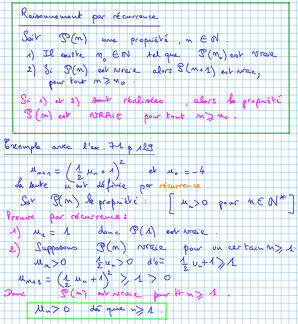 Raisonnement par récurrence
Soit P(n) une propriété, n ∈ ℕ.
1) Il existe n₀ ∈ ℕ tel que P(n₀) est vraie
2) Si P(n) est vraie alors P(n+1) est vraie,
pour tout n ≥ n₀.
Si 1) et 2) sont réalisées, alors la propriété
P(n) est VRAIE pour tout n ≥ n₀.
Exemple avec l'ex 71 p 129
uₙ₊₁ = (1/2 uₙ + 1)² et u₀ = -4
la suite u est définie par récurrence.
Soit P(n) la propriété : [uₙ > 0 pour n ∈ ℕ*]
Preuve par récurrence :
1) u₁ = 1 donc P(1) est vraie.
2) Supposons P(n) vraie pour un certain n ≥ 1.
uₙ > 0 1/2 uₙ > 0 d'où 1/2 uₙ + 1 ≥ 1
uₙ₊₁ = (1/2 uₙ + 1)² ≥ 1 > 0
Donc P(n) est vraie pour tt n ≥ 1
uₙ > 0 dès que n ≥ 1.